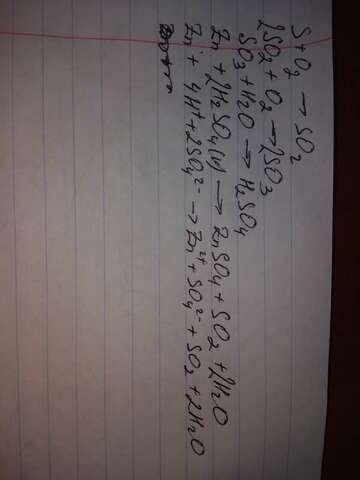 S+O₂ → SO₂
2SO₂ + O₂ → 2SO₃
SO₃ + H₂O → H₂SO₄
Zn + 2H₂SO₄(к) → ZnSO₄ + SO₂ + 2H₂O
Zn + 4H⁺ + 2SO₄²⁻ → Zn²⁺ + SO₄²⁻ + SO₂ + 2H₂O